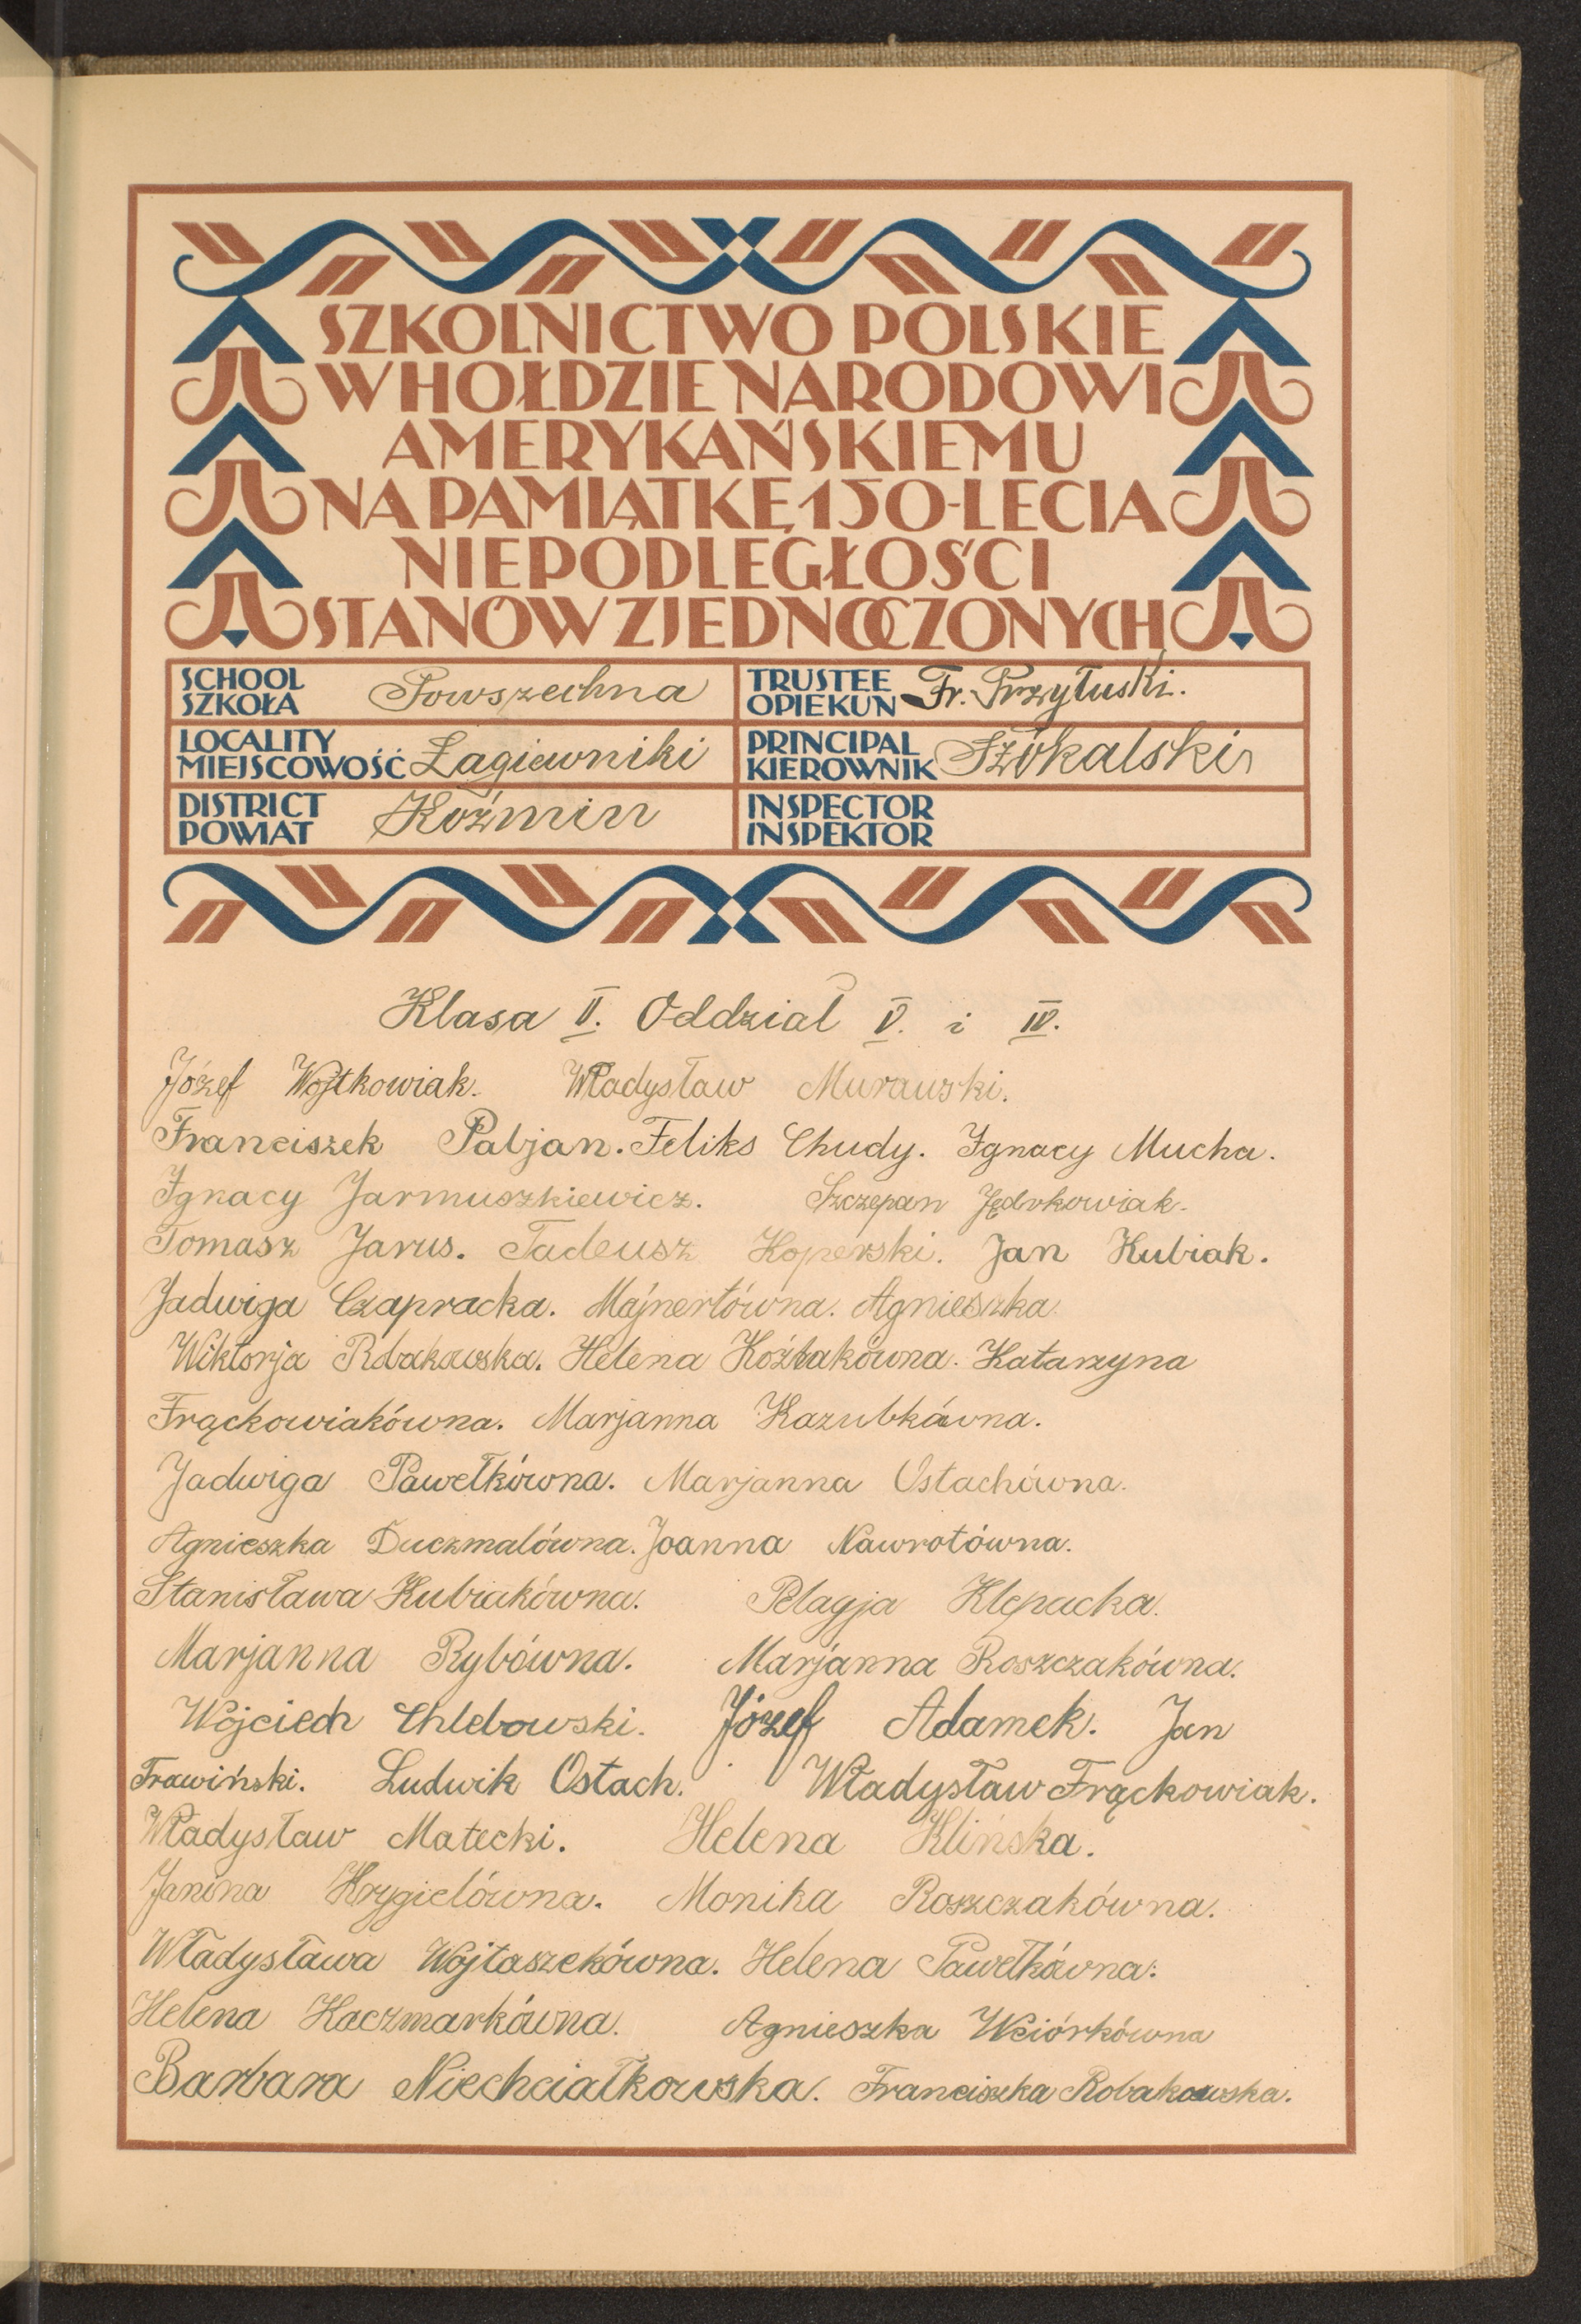 SZKOLNICTWO POLSKIE
W HOŁDZIE NARODOWI
AMERYKAŃSKIEMU
NA PAMIĄTKĘ 150-LECIA
NIEPODLEGŁOŚCI
STANÓW ZJEDNOCZONYCH
SCHOOL
SZKOŁA Powszechna
TRUSTEE
OPIEKUN Fr. Przyłuski.
LOCALITY
MIEJSCOWOŚĆ Łagiewniki
PRINCIPAL
KIEROWNIK Szókalski
DISTRICT
POWIAT Koźmin
INSPECTOR
INSPEKTOR
Klasa II. Oddział V. i IV.
Józef Wojtkowiak. Władysław Murawski.
Franciszek Pabjan. Feliks Chudy. Ignacy Mucha.
Ignacy Jarmuszkiewicz. Szczepan Jędrkowiak.
Tomasz Jarus. Tadeusz Koperski. Jan Kubiak.
Jadwiga Czapracka. Majnertówna. Agnieszka
Wiktorja Robakowska. Helena Koźlakówna. Katarzyna
Frąckowiakówna. Marjanna Kazubkówna.
Jadwiga Pawełkówna. Marjanna Ostachówna.
Agnieszka Duczmalówna. Joanna Nawrotówna.
Stanisława Kubiakówna. Pelagja Klepacka.
Marjanna Rybówna. Marjanna Roszczakówna.
Wojciech Chlebowski. Józef Adamek. Jan
Trawiński. Ludwik Ostach. Władysław Frąckowiak.
Władysław Matecki. Helena Klińska.
Janina Krygielówna. Monika Roszczakówna.
Władysława Wojtaszekówna. Helena Pawełkówna.
Helena Kaczmarkówna. Agnieszka Wciórkówna
Barbara Niechciałkowska. Franciszka Robakowska.